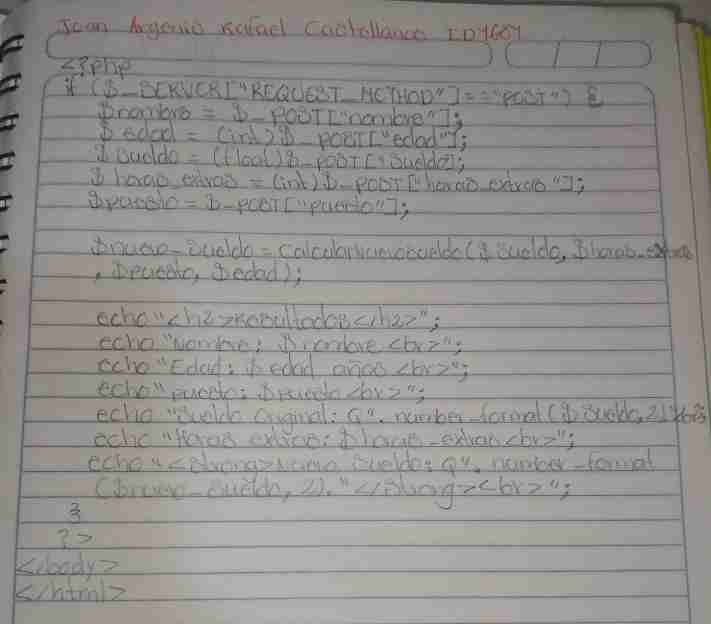 Joan Argenis Rafael Castellanos ID7607
<?php
if ($_SERVER["REQUEST_METHOD"]=="POST") {
$nombre = $_POST["nombre"];
$edad = (int)$_POST["edad"];
$sueldo = (float)$_POST["sueldo];
$horas_extras = (int)$_POST["horas_extras"];
$puesto = $_POST["puesto"];
$nuevo_sueldo = calcularNuevoSueldo($sueldo, $horas_extras
, $puesto, $edad);
echo "<h2>Resultados</h2>";
echo "Nombre: $nombre<br>";
echo "Edad: $edad años<br>";
echo "puesto: $puesto<br>";
echo "Sueldo Original: Q". number_format($sueldo,2)
echo "Horas extras: $horas_extras<br>";
echo "<strong>Nuevo Sueldo: Q". number_format
($nuevo_sueldo, 2). "</strong><br>";
}
?>
</body>
</html>